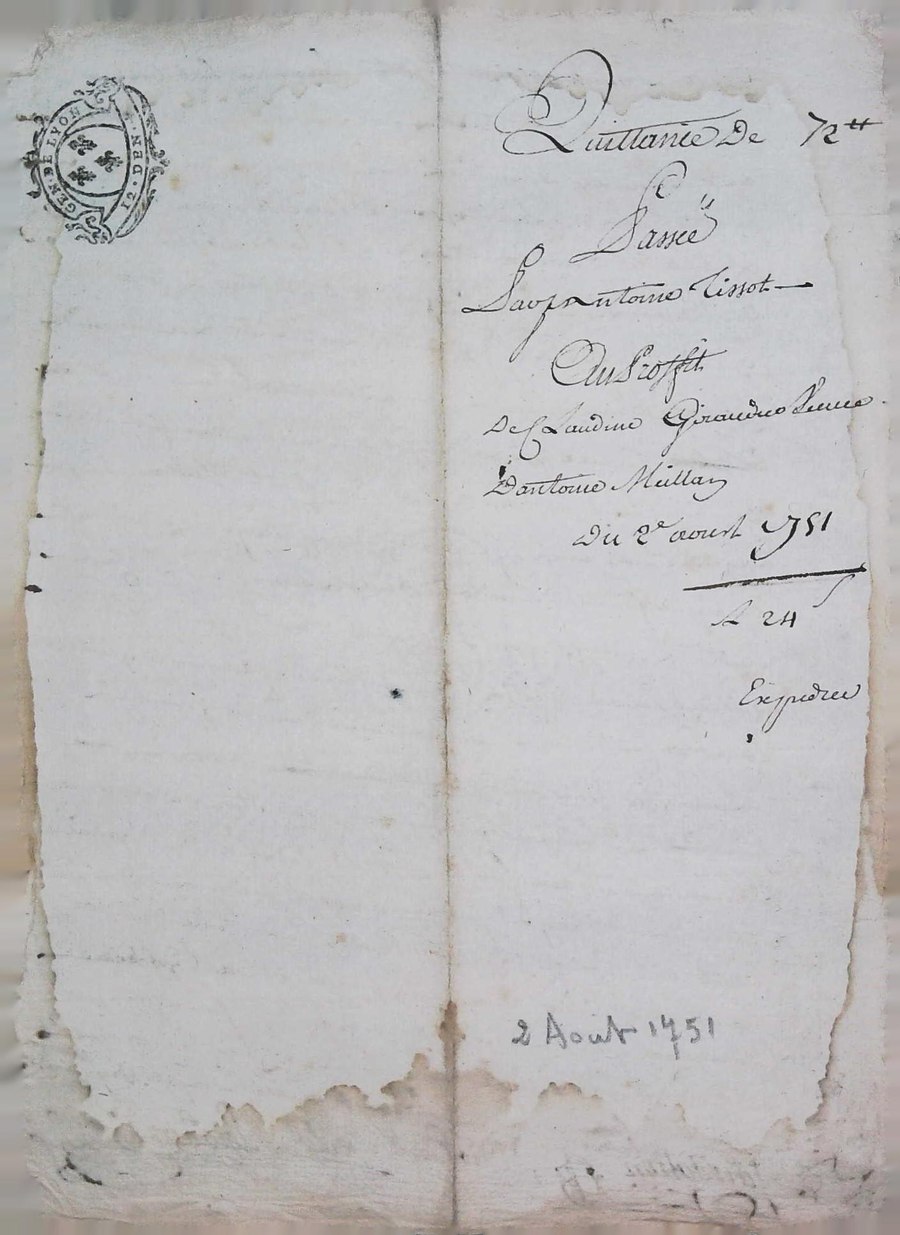 GEN. DE LYON
12. DEN.
Quittance De 72tt
Passée
Par Antoine Tissot
Au Proffit
De Claudine Giraud veuve
D'antoine Meillan
Du 2e aoust 1751
A 24 s
Expediée
2 Août 1751